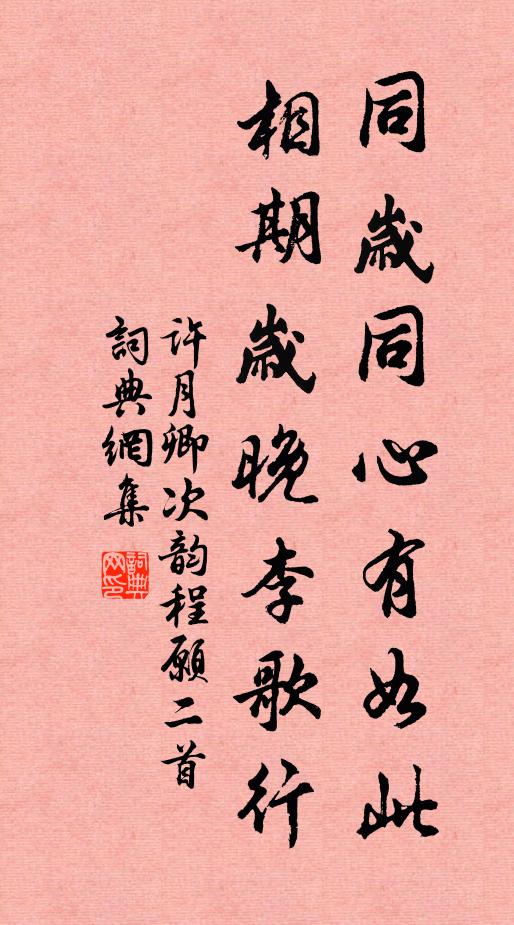 同歲同心有如此
相期歲晚李歌行
許月卿次韵程願二首
詞典網集
詞典網印